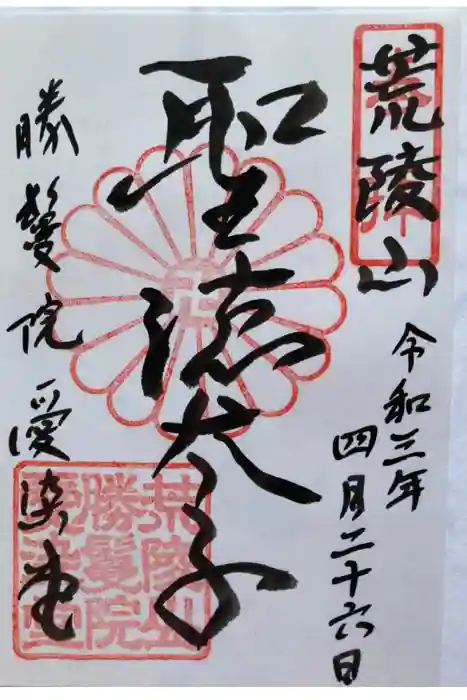 荒陵山
令和三年
四月二十六日
聖徳太子
勝鬘院愛染堂
荒陵山
勝鬘院
愛染堂